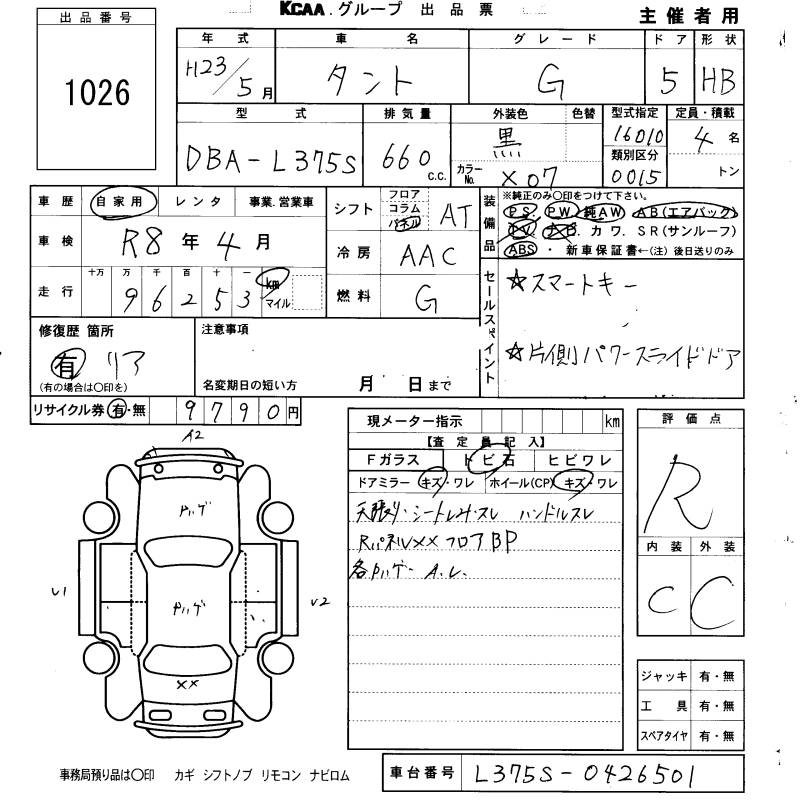 KCAA.グループ 出品票 主催者用
出品番号
1026
年式 車名 グレード ドア 形状
H23/5月 タント G 5 HB
型式 排気量 外装色 色替 型式指定 定員・積載
DBA-L375S 660 c.c. 黒 カラーNo. X07 16010 4名
類別区分
0015 トン
車歴 自家用 レンタ 事業.営業車
車検 R8年4月
走行 十万 万 千 百 十 一 km マイル
96253
シフト フロア コラム パネル AT
冷房 AAC
燃料 G
装備品 ※純正のみ○印をつけて下さい。
PS. PW. 純AW. AB(エアバック)
TV. ナビ. カワ. SR(サンルーフ)
ABS ・ 新車保証書←(注)後日送りのみ
セールスポイント
☆スマートキー
☆片側パワースライドドア
修復歴 箇所
有 リア
(有の場合は○印を)
注意事項
名変期日の短い方 月 日まで
リサイクル券 有・無 9790円
現メーター指示 km
【査定員記入】
Fガラス トビ石 ヒビワレ
ドアミラー キズ・ワレ ホイール(CP) キズ・ワレ
天張り・シートしみ・スレ ハンドルスレ
RパネルXX フロアBP
各ハゲ A.U.
評価点
R
内装 外装
C C
A2
ハゲ
U1
ハゲ
U2
XX
ジャッキ 有・無
工具 有・無
スペアタイヤ 有・無
事務局預り品は○印 カギ シフトノブ リモコン ナビロム
車台番号 L375S-0426501